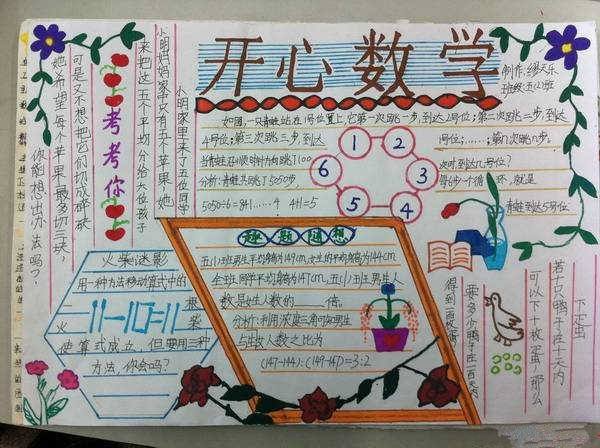 开心数学
制作:缪天乐
班级:五(2)班
小明家里来了五位同学
小明妈妈家只有五个苹果,她
来把这五个平均分给六位孩子
可是又不想把它们切成碎碎
她希望每个苹果最多切三块,
你能想出办法吗?
考考你
如图,一只青蛙站在1号位置上,它第一次跳一步,到达2号位;第二次跳二步,到达
4号位;第三次跳三步,到达
1号位;……;第n次跳n步,
当青蛙沿顺时针方向跳了100
次时,到达几号位?
分析:青蛙共跳了5050步,
每6步一个循环,就是
5050÷6=841……4 4+1=5
青蛙到达5号位
1
2
3
4
5
6
趣题遐想
五(1)班男生平均身高为149cm,女生的平均身高为144cm
全班同学平均身高为147cm,五(1)班男生人
数是女生人数的____倍。
分析:利用浓度三角可知男生
与女生人数之比为
(147-144):(149-147)=3:2
火柴谜影
用一种方法移动算式中的
一根火柴
使算式成立,但要用三种
方法,你会吗?
下蛋
若十只鸭子在十天内
可以下十枚蛋,那么
要多少鸭子在一百天内
得到一百枚蛋?